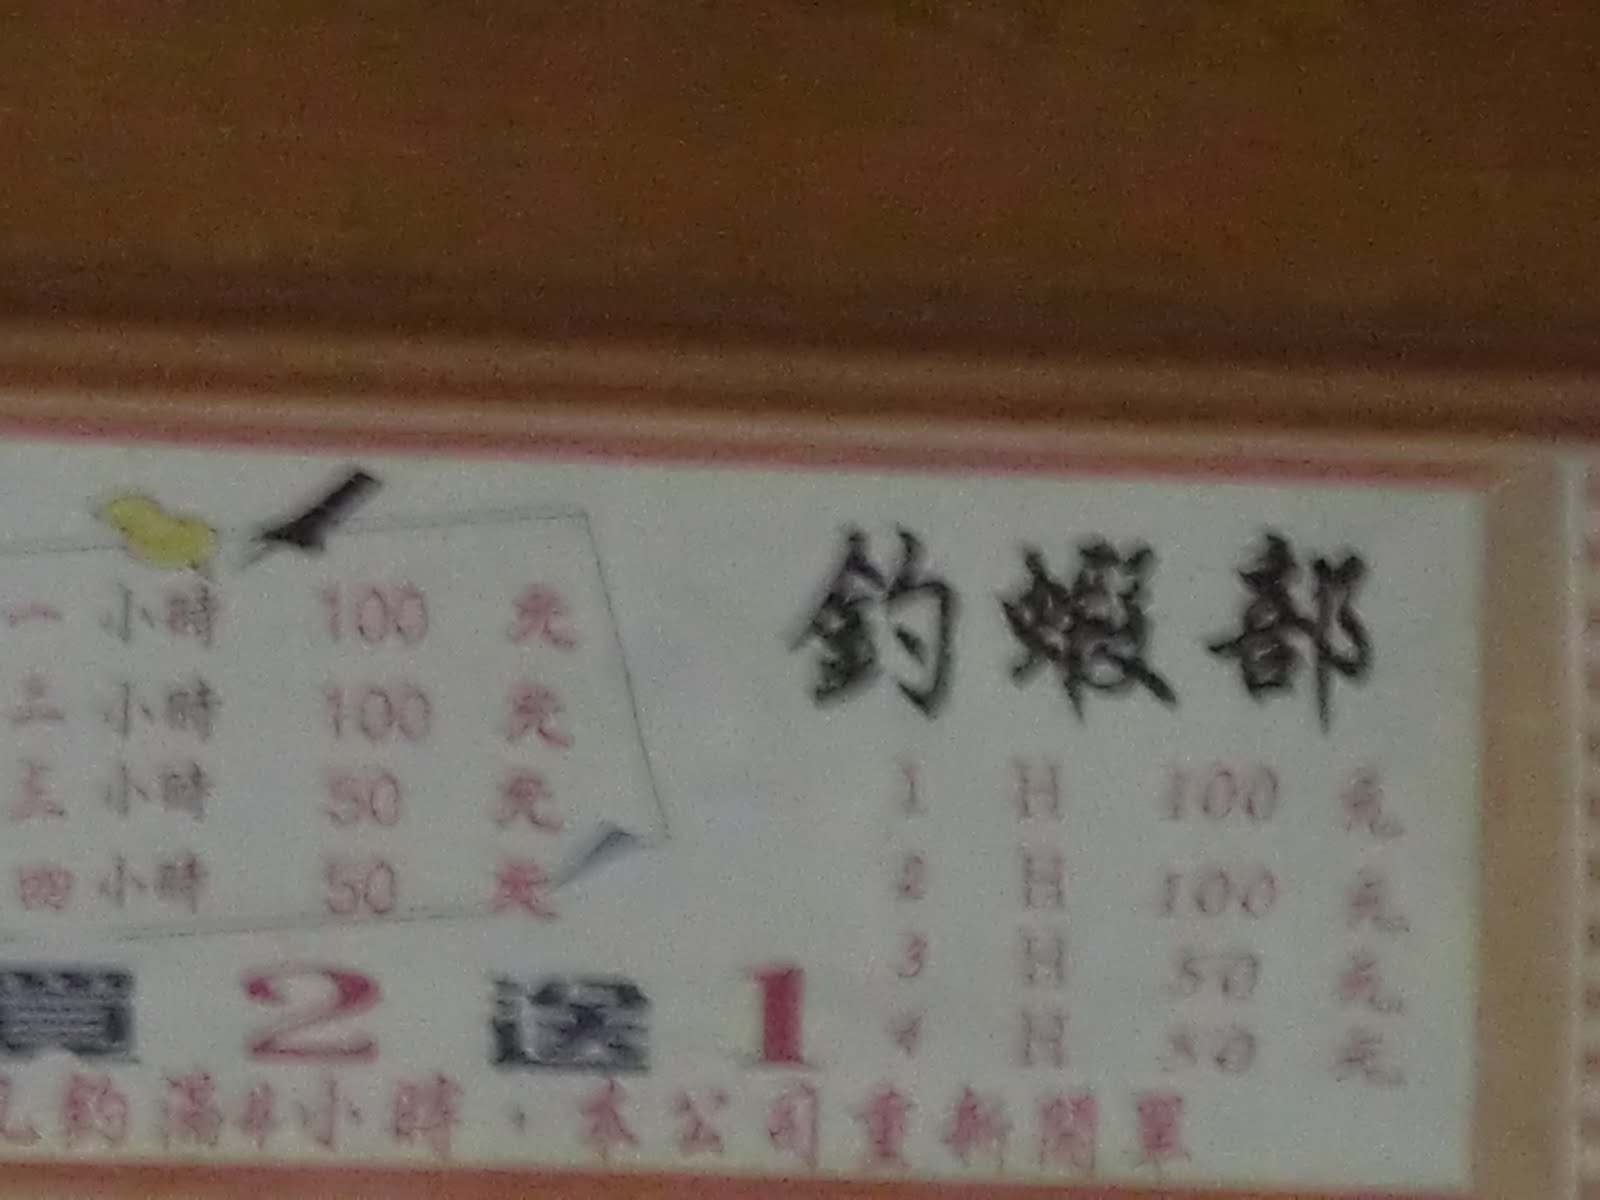 釣蝦部
一小時 100 元
二小時 100 元
三小時 50 元
四小時 50 元
1 H 100 元
2 H 100 元
3 H 50 元
4 H 50 元
買2送1
凡釣滿4小時，本公司重新開單